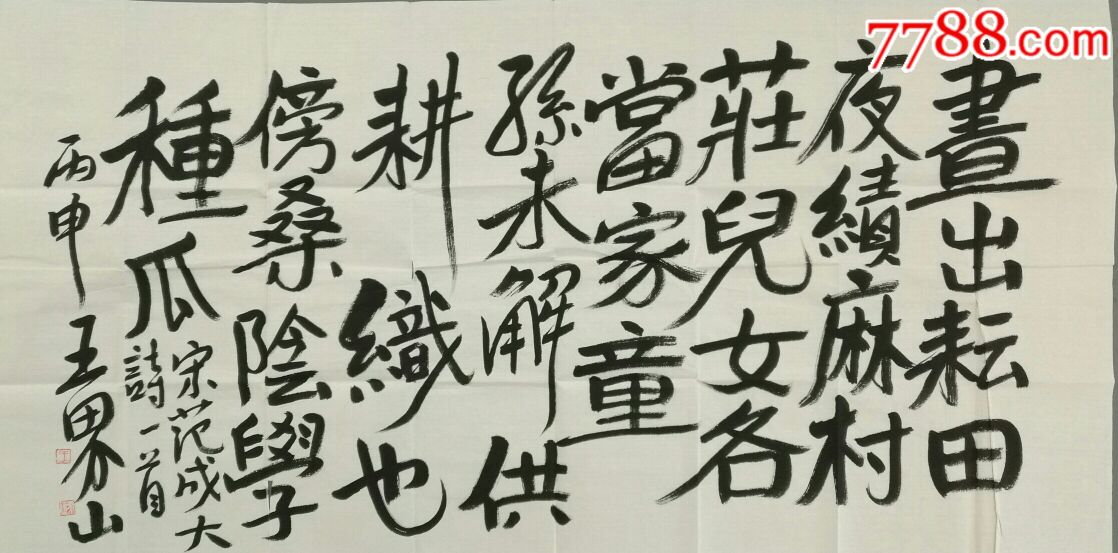 晝出耘田
夜績麻村
莊兒女各
當家童
孫未解供
耕織也
傍桑陰學
種瓜
宋范成大
詩一首
丙申王界山
7788.com